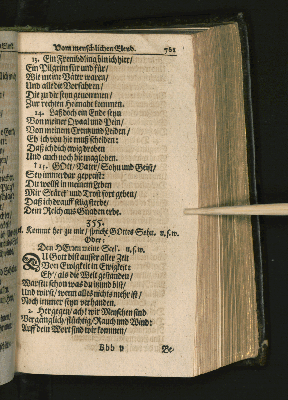 Vom menschlichen Elend. 761
13. Ein Frembdling bin ich hier/
Ein Pilgrim für und für/
Wie meine Väter waren/
Und alle die Vorfahren/
Die zu dir seyn genommen/
Zur rechten Heimaht kommen.
14. Laß doch ein Ende seyn
Von meiner Qvaal und Pein/
Von meinem Creutz und Leiden/
Eh ich von hie muß scheiden:
Daß ich dich ewig droben
Und auch noch hie mag loben.
15. GOtt/ Vater/ Sohn und Geist/
Sey immerdar gepreist:
Du wollst in meinem Leben
Mir Stärck' und Trost fort geben/
Daß ich drauff selig sterbe/
Dein Reich aus Gnaden erbe.
355.
Kommt her zu mir/ spricht GOttes Sohn. u.s.w.
Oder:
Den HErren meine Seel'. u.s.w.
DU Gott bist ausser aller Zeit
Von Ewigkeit in Ewigkeit:
Eh/ als die Welt gestanden/
Warstu schon was du itzund bist/
Und wirst/ wenn alles nichts mehr ist/
Noch immer seyn verhanden.
2. Hergegen/ ach! wir Menschen sind
Vergänglich/ flüchtig/ Rauch und Wind:
Auff dein Wort sind wir kommen/
Bbb v Be-